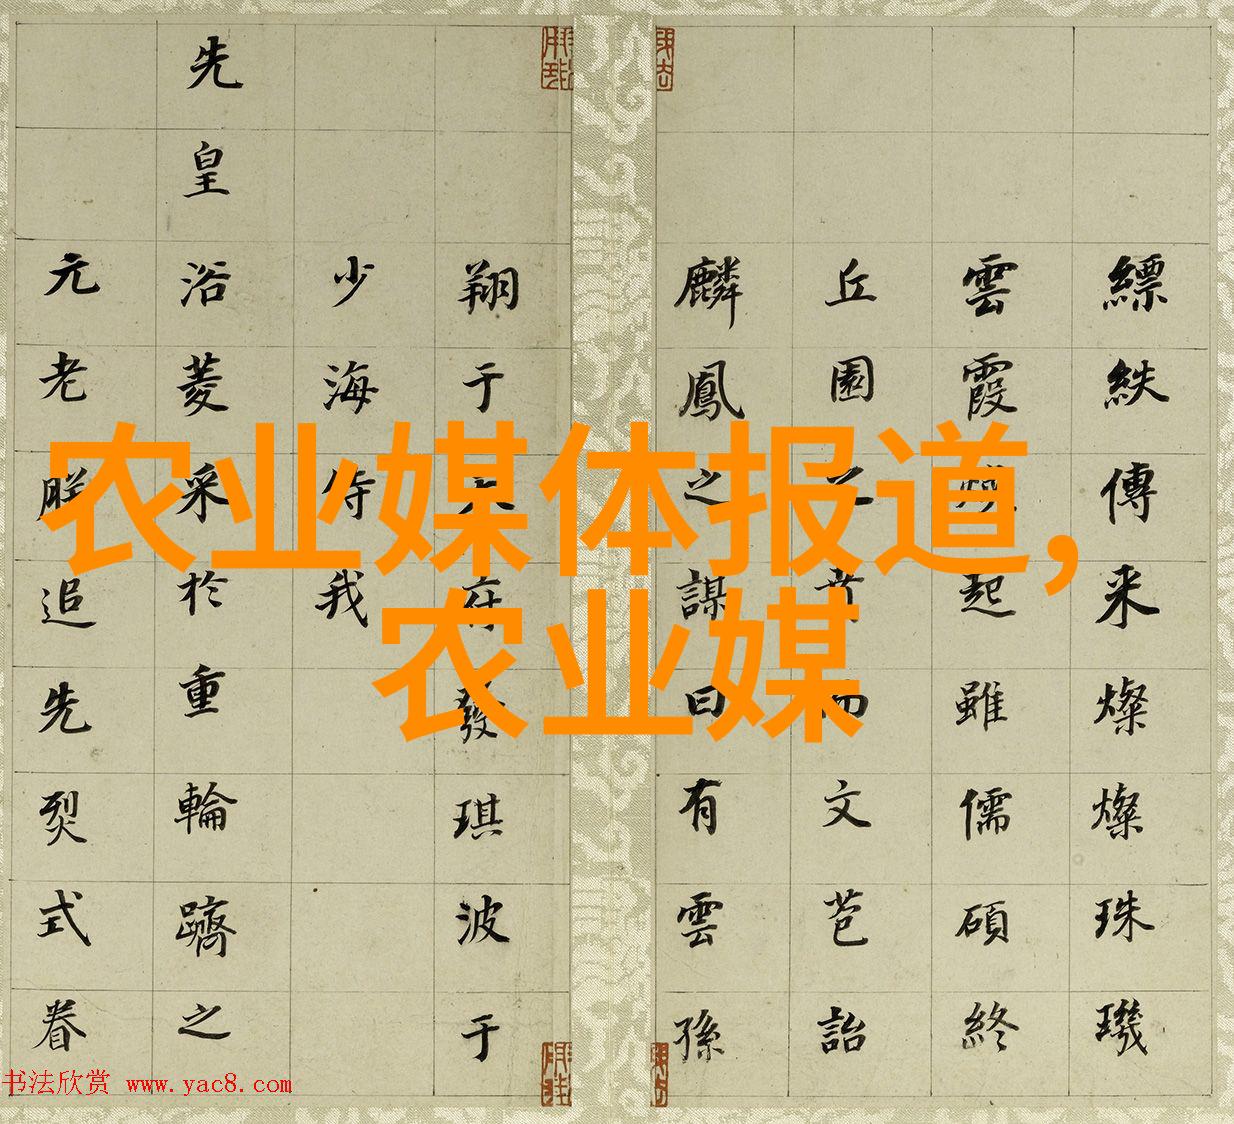 縹紩傳来燦燦珠璣
雲霞起雖儒碩終
丘園文芑詒
麟鳳之謀曰有雲孫
翔于府發琪波于
少海侍我
先皇浴菱采於重輪躋之
元老朕追先烈式眷
农业媒体报道,
农业媒
书法欣赏 www.yac8.com